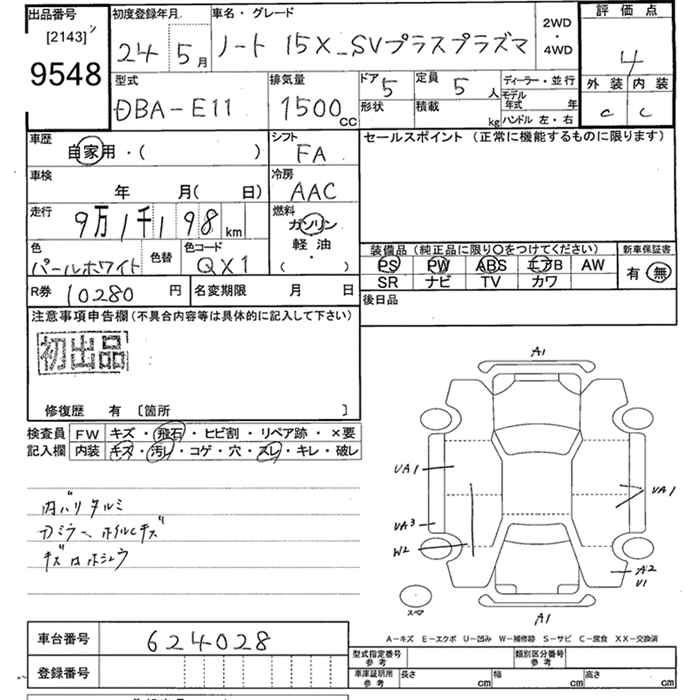 出品番号
[2143]
9548
初度登録年月
24 5月
車名・グレード
ノート 15X_SVプラスプラズマ
2WD
・
4WD
評価点
4
外装 内装
C C
型式
DBA-E11
排気量
1500 CC
ドア 5
定員 5 人
形状
積載 kg
ディーラー・並行
モデル年式 年
ハンドル 左・右
車歴
自家用・( )
シフト
FA
車検
年 月( 日)
冷房
AAC
走行
9万1千198 km
燃料
ガソリン
軽油
( ・ )
色
パールホワイト
色替
色コード
QX1
R券 10280 円
名変期限 月 日
セールスポイント (正常に機能するものに限ります)
装備品(純正品に限り○をつけてください)
PS PW ABS エアB AW
SR ナビ TV カワ
新車保証書
有・無
後日品
注意事項申告欄(不具合内容等は具体的に記入して下さい)
初出品
修復歴 有 [箇所 ]
検査員
記入欄
FW キズ・飛石・ヒビ割・リペア跡・×要
内装 キズ・汚レ・コゲ・穴・スレ・キレ・破レ
内バリタルミ
カミラー、ホイルCキズ
キズ ホシュウ
A1
UA1
UA3
W2
UA1
A2
U1
スペア
A1
A-キズ E-エクボ U-凹み W-補修跡 S-サビ C-腐食 XX-交換済
車台番号 624028
登録番号
型式指定番号
参考
類別区分番号
参考
車庫証明用
参考
長さ cm
幅 cm
高さ cm